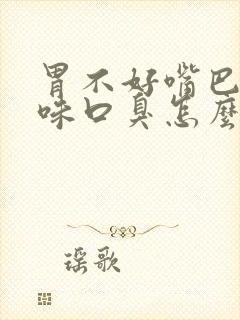 胃不好嘴巴
味口臭怎麼
瑶歌